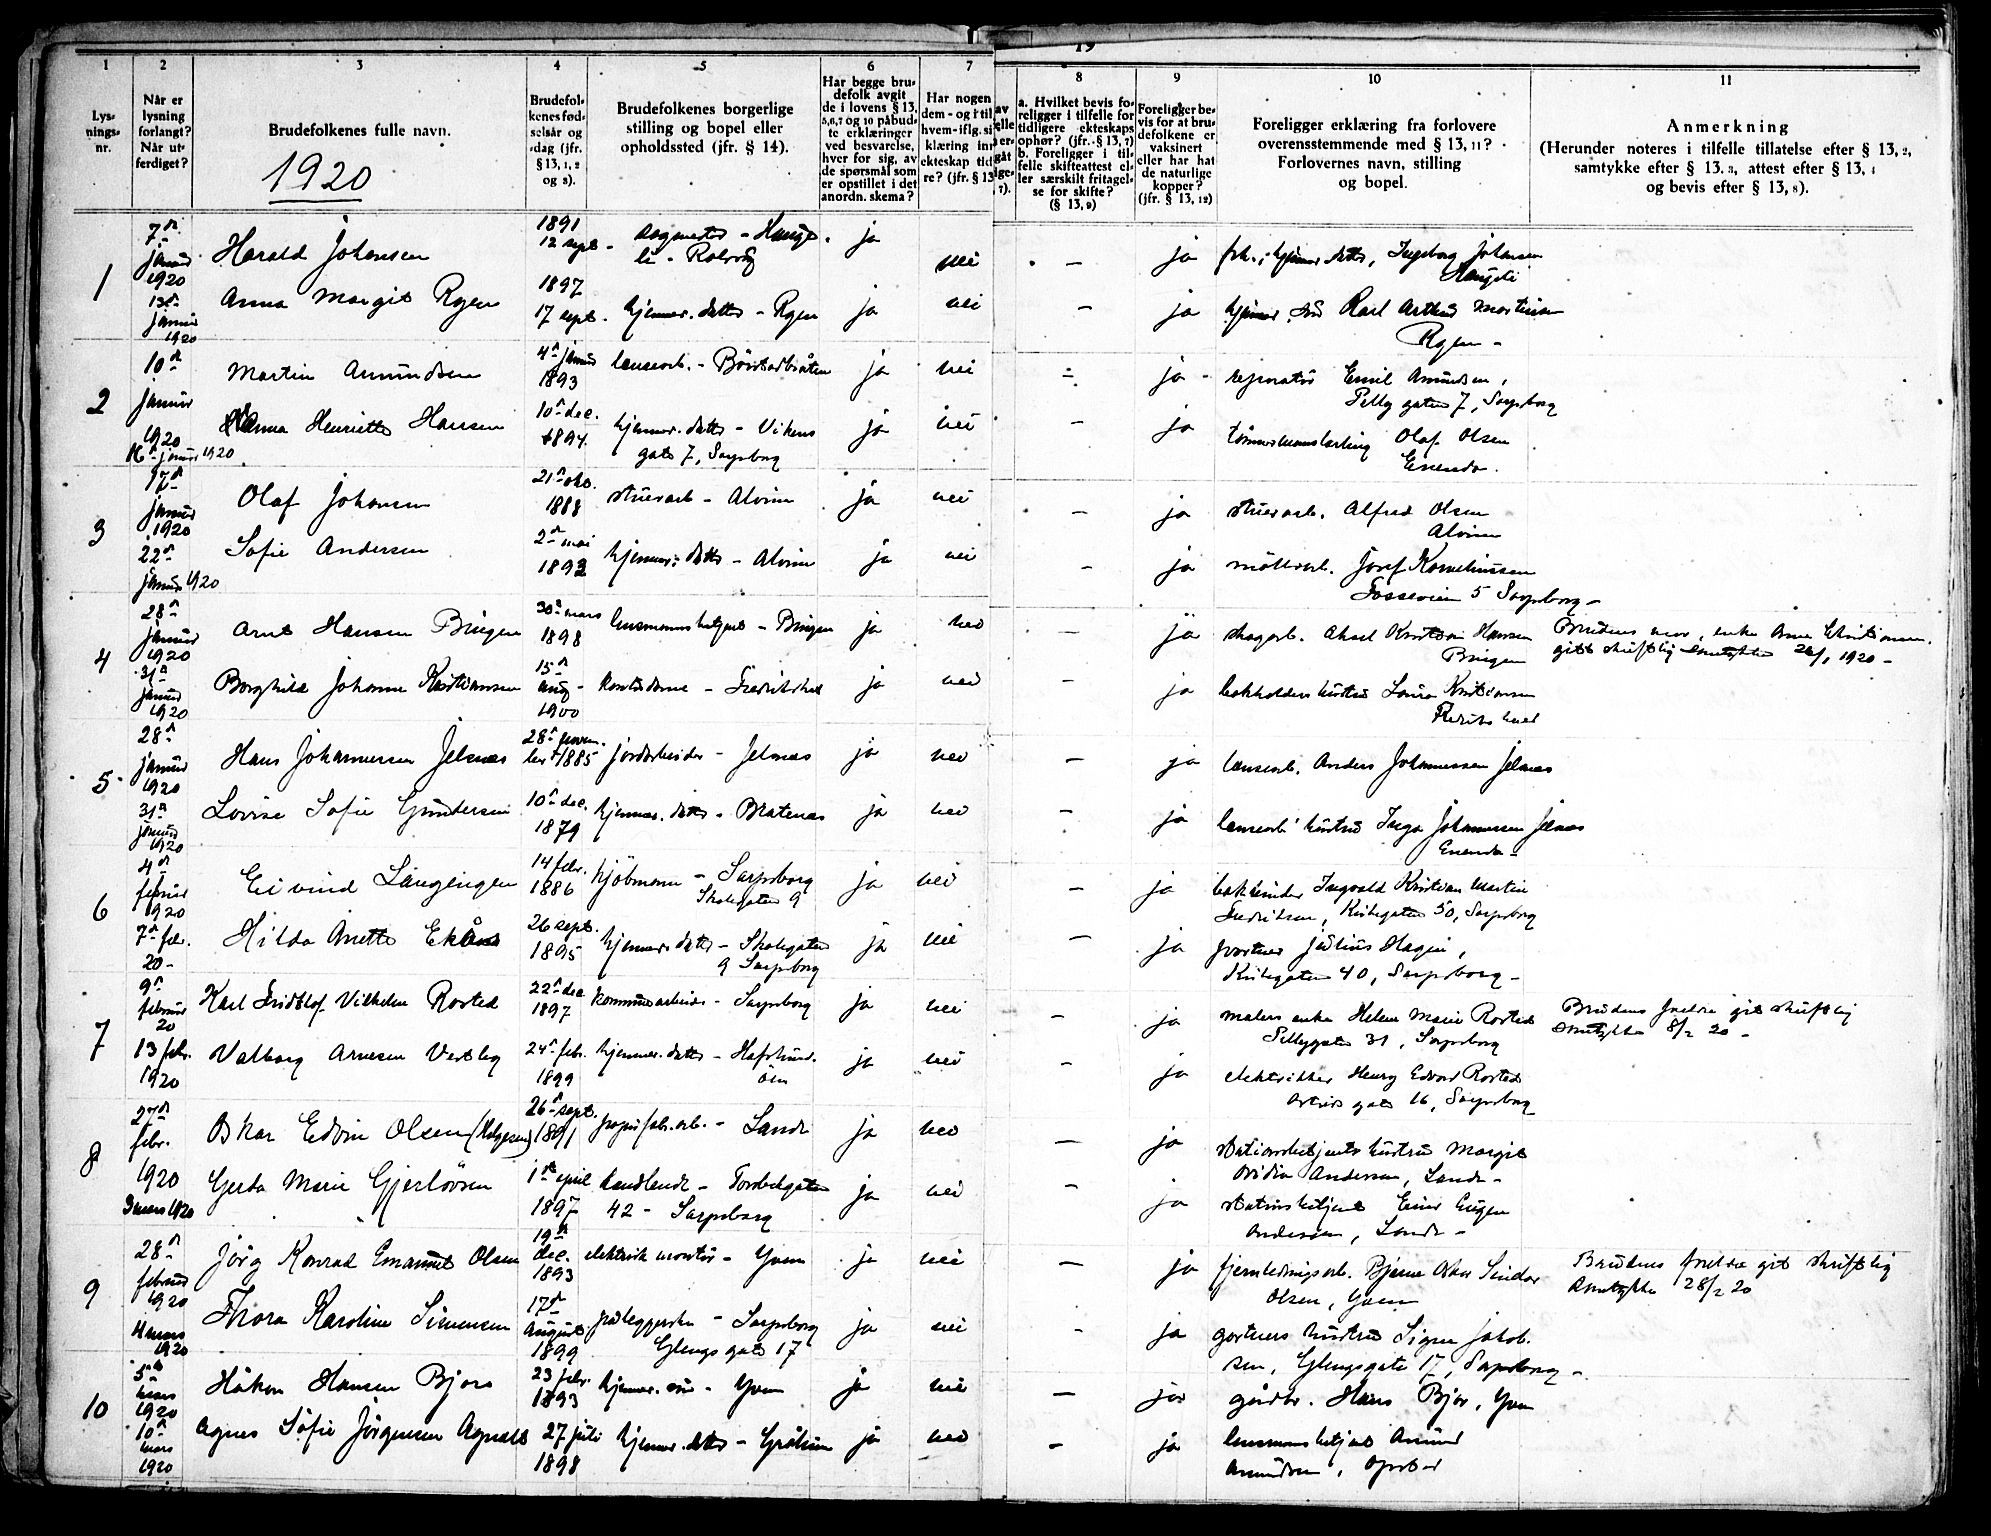 19
1 2 3 4 5 6 7 8 9 10 11
Lys-
nings-
nr.
Når er
lysning
forlangt?
Når ut-
ferdiget?
Brudefolkenes fulle navn.
1920
Brudefol-
kenes fød-
selsår og
-dag (jfr.
§ 13, 1, 2
og 3).
Brudefolkenes borgerlige
stilling og bopel eller
opholdssted (jfr. § 14).
Har begge bru-
defolk avgit
de i lovens § 13,
5, 6, 7 og 10 påbud-
te erklæringer
ved besvarelse,
hver for sig, av
de spørsmål som
er opstillet i det
anordn. skema?
Har nogen
dem - og i til
hvem - iflg. si
klæring inn
ekteskap tid
re? (jfr. § 13
a. Hvilket bevis fo-
religger i tilfelle for
tidligere ekteskaps
ophør? (jfr. § 13, 7)
b. Foreligger i til-
felle skifteattest el-
ler særskilt fritagel-
se for skifte?
(§ 13, 9)
Foreligger be-
vis for at bru-
defolkene er
vaksinert
eller har hat
de naturlige
kopper?
(jfr. § 13, 12)
Foreligger erklæring fra forlovere
overensstemmende med § 13, 11?
Forlovernes navn, stilling
og bopel.
Anmerkning
(Herunder noteres i tilfelle tillatelse efter § 13, 2,
samtykke efter § 13, 3, attest efter § 13, 4
og bevis efter § 13, 8).
1
7de januar 1920
Harald Johansen
1891 12 sept.
ja nei - ja
Ingeborg Johansen
Haugli
13de januar 1920
Anna Margit Rgen
1897 17 sept.
hjemmev. datter - Rgen
ja nei - ja
Karl Arthur Martinsen
Rgen -
2
10de januar 1920
Martin Amundsen
4de januar 1893
lensearb.
ja nei - ja
reparatør Emil Amundsen,
Pellygaten 7, Sarpsborg
16de januar 1920
Anna Henriette Hansen
10de dec. 1894.
hjemmev. datter - Vikens
gate 7, Sarpsborg
ja nei - ja
tømmermannslærling Olaf Olsen
3
17de januar 1920
Olaf Johansen
21de okt. 1888
stuerarb. - Alvim
ja nei - ja
stuerarb. Alfred Olsen
Alvim
22de januar 1920
Sofie Andersen
2de mai 1892
hjemmev. datter - Alvim
ja nei - ja
møllearb. Josef Korneliussen
Fossveien 5 Sarpsborg -
4
28de januar 1920
Arne Hansen Bingen
30te mars 1898
lensmannsbetjent - Bingen
ja nei - ja
skogarb. Aksel Kristian Hansen
Bingen
Brudens mor, enke Anna Christiansen
gitt skriftlig samtykke 26/1 1920 -
31te januar 1920
Borghild Johanne Kristiansen
15de aug. 1900
kontordame - Fredrikstad
ja nei ja
bokholders hustru Laura Kristiansen
Fredrikstad
5
28de januar 1920
Hans Johannessen Jelsnes
28de 1885
jordarbeider - Jelsnes
ja nei - ja
lensearb. Anders Johannessen Jelsnes
31te januar 1920
Lovise Sofie Gundersen
10de dec. 1879
hjemmev. datter - Bratenes
ja nei - ja
lensearb. hustru Inga Johannessen Jelsnes
6
4de februar 1920
Eivind Langengen
14 febr. 1886
kjøbmann - Sarpsborg
Skolegaten 9
ja nei - ja
bokbinder Ingvald Kristian Martin
Fredriksen, Kirkegaten 50, Sarpsborg
7de febr. 20 -
Hilda Anette Ekåne
26 sept. 1895
hjemmev. datter - Skolegaten
9 Sarpsborg
ja nei - ja
portner Julius Hagen,
Kirkegaten 40, Sarpsborg -
7
9de februar 20
Karl Fridtlof Vilhelm Rostad
22de dec. 1897
kommunearbeider - Sarpsborg
ja nei - ja
malers enke Helene Marie Rostad
Pellygaten 31, Sarpsborg
Brudens foreldre git skriftlig
samtykke 8/2 20 -
13 febr. 1920
Valborg Arnesen Vestby
24de febr. 1899
hjemmev. datter - Hafslund.
ja nei - ja
elektriker Henry Edvard Rostad
gate 16, Sarpsborg
8
27de febr. 1920
Oskar Edvin Olsen (Holgersen)
26de sept. 1891
papirfabr.arb. - Sande
ja nei - ja
stationsbetjents hustru Margit
Ovidia Andersen, Sande -
3 mars 1920
Gerda Marie Gjerløvsen
1ste april 1897
handlende - Tordalgaten
42 - Sarpsborg
ja nei - ja
stationsbetjent Einar Eugen
Andersen, Sande -
9
28de februar 1920
Jørg Konrad Emanuel Olsen
19de dec. 1893
elektrisk montør - Yven
ja nei - ja
fjernledningsarb. Bjarne Oskar Sindar
Olsen, Yven
Brudens foreldre git skriftlig
samtykke 28/2 20
4 mars 1920
Thora Karoline Simensen
17de august 1899
Sarpsborg
Glengsgate 17
ja nei - ja
gartners hustru Signe Jakob-
sen, Glengsgate 17, Sarpsborg -
10
5te mars 1920
Håkon Hansen Bjørs
23 febr. 1893
hjemmev. søn - Yven
ja nei - ja
gårdbr. Hans Bjør, Yven
10de mars 1920
Agnes Sofie Jørgensen Agnalt
27 juli 1898
hjemmev. datter - Grålum
ja nei - ja
lensmannsbetjent Amund
Amundsen, Opstad